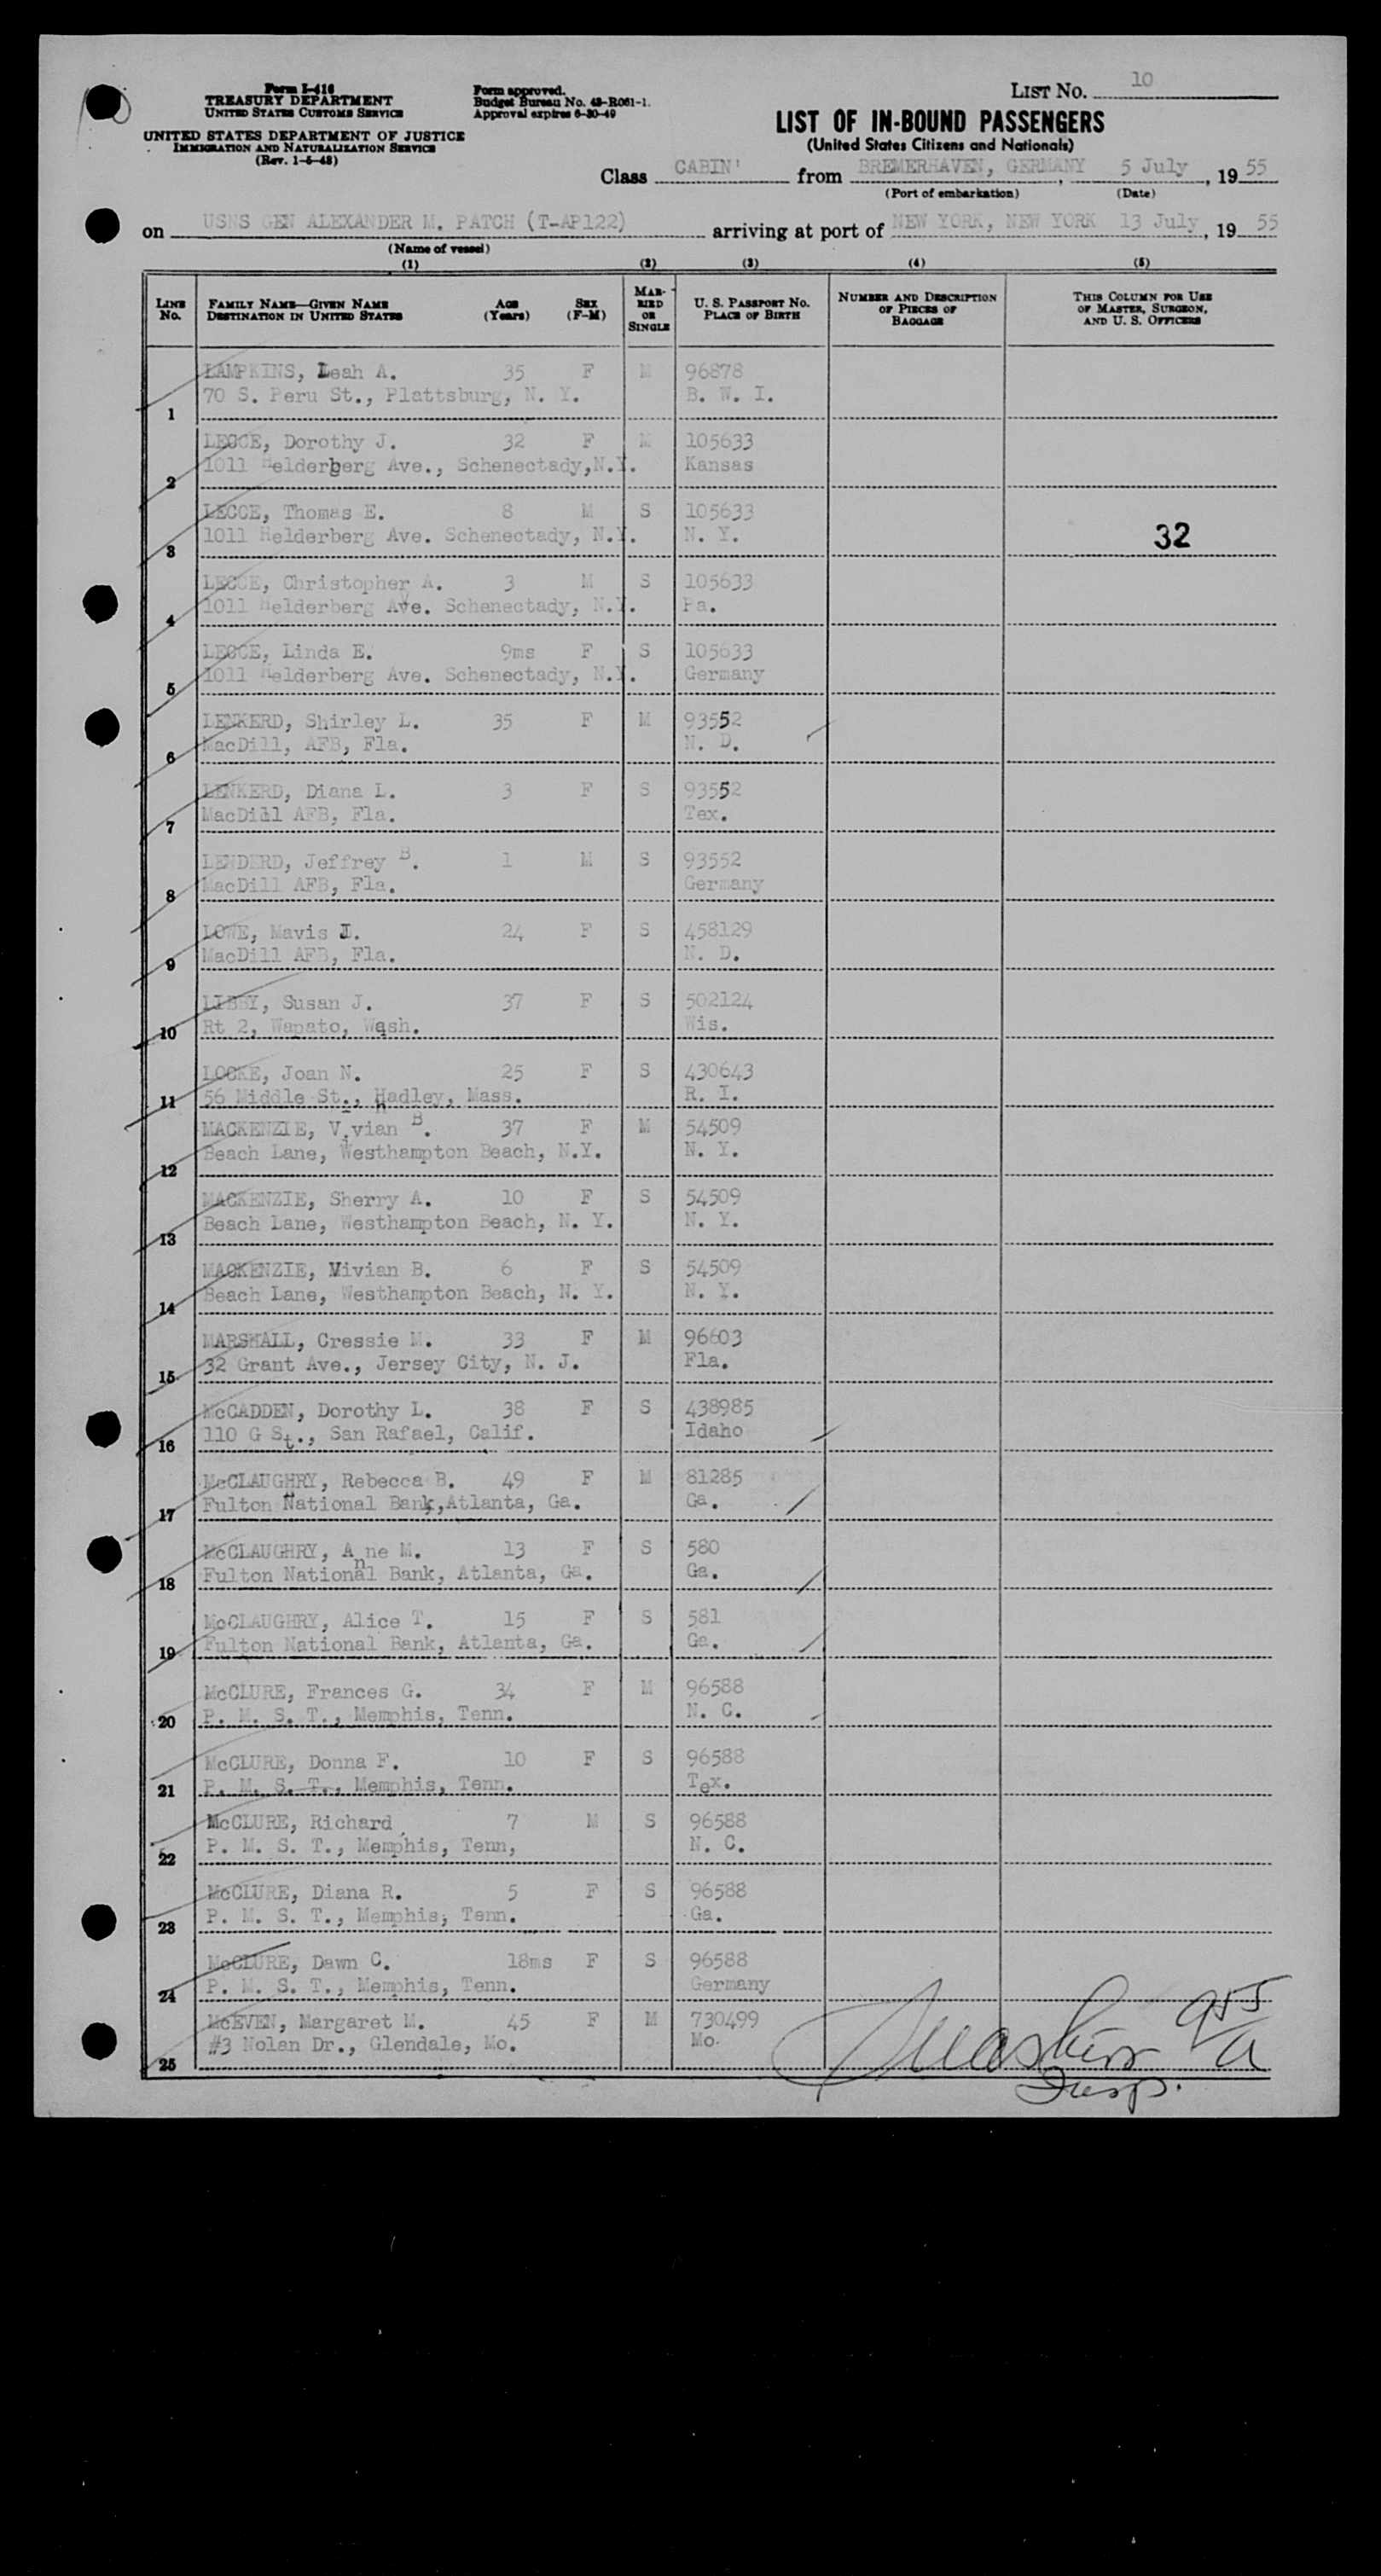 Form I-416
TREASURY DEPARTMENT
UNITED STATES CUSTOMS SERVICE
UNITED STATES DEPARTMENT OF JUSTICE
IMMIGRATION AND NATURALIZATION SERVICE
(Rev. 1-5-48)
Form approved.
Budget Bureau No. 43-R061-1.
Approval expires 6-30-49
LIST No. 10
LIST OF IN-BOUND PASSENGERS
(United States Citizens and Nationals)
Class CABIN' from BREMERHAVEN, GERMANY, 5 July, 19 55
(Port of embarkation) (Date)
on USNS GEN ALEXANDER M. PATCH (T-AP122) arriving at port of NEW YORK, NEW YORK 13 July, 19 55
(Name of vessel)
(1) (2) (3) (4) (5)
LINE No. FAMILY NAME—GIVEN NAME DESTINATION IN UNITED STATES AGE (Years) SEX (F-M) MARRIED OR SINGLE U. S. PASSPORT No. PLACE OF BIRTH NUMBER AND DESCRIPTION OF PIECES OF BAGGAGE THIS COLUMN FOR USE OF MASTER, SURGEON, AND U. S. OFFICERS
LAMPKINS, Leah A. 35 F M 96878
1 70 S. Peru St., Plattsburg, N. Y. B. W. I.
LECCE, Dorothy J. 32 F M 105633
2 1011 Helderberg Ave., Schenectady, N.Y. Kansas
LECCE, Thomas E. 8 M S 105633
3 1011 Helderberg Ave. Schenectady, N.Y. N. Y. 32
LECCE, Christopher A. 3 M S 105633
4 1011 Helderberg Ave. Schenectady, N.Y. Pa.
LECCE, Linda E. 9ms F S 105633
5 1011 Helderberg Ave. Schenectady, N.Y. Germany
LENKERD, Shirley L. 35 F M 93552
6 MacDill, AFB, Fla. N. D.
LENKERD, Diana L. 3 F S 93552
7 MacDill AFB, Fla. Tex.
LENDERD, Jeffrey B. 1 M S 93552
8 MacDill AFB, Fla. Germany
LOWE, Mavis I. 24 F S 458129
9 MacDill AFB, Fla. N. D.
LIBBY, Susan J. 37 F S 502124
10 Rt 2, Wapato, Wash. Wis.
LOCKE, Joan N. 25 F S 430643
11 56 Middle St., Hadley, Mass. R. I.
MACKENZIE, Vivian B. 37 F M 54509
12 Beach Lane, Westhampton Beach, N.Y. N. Y.
MACKENZIE, Sherry A. 10 F S 54509
13 Beach Lane, Westhampton Beach, N. Y. N. Y.
MACKENZIE, Vivian B. 6 F S 54509
14 Beach Lane, Westhampton Beach, N. Y. N. Y.
MARSHALL, Cressie M. 33 F M 96603
15 32 Grant Ave., Jersey City, N. J. Fla.
McCADDEN, Dorothy L. 38 F S 438985
16 110 G St., San Rafael, Calif. Idaho
McCLAUGHRY, Rebecca B. 49 F M 81285
17 Fulton National Bank, Atlanta, Ga. Ga.
McCLAUGHRY, Anne M. 13 F S 580
18 Fulton National Bank, Atlanta, Ga. Ga.
McCLAUGHRY, Alice T. 15 F S 581
19 Fulton National Bank, Atlanta, Ga. Ga.
McCLURE, Frances G. 34 F M 96588
20 P. M. S. T., Memphis, Tenn. N. C.
McCLURE, Donna F. 10 F S 96588
21 P. M. S. T., Memphis, Tenn. Tex.
McCLURE, Richard 7 M S 96588
22 P. M. S. T., Memphis, Tenn, N. C.
McCLURE, Diana R. 5 F S 96588
23 P. M. S. T., Memphis, Tenn. Ga.
McCLURE, Dawn C. 18ms F S 96588
24 P. M. S. T., Memphis, Tenn. Germany
McEVEN, Margaret M. 45 F M 730499
25 #3 Nolan Dr., Glendale, Mo. Mo.
955
Insp.